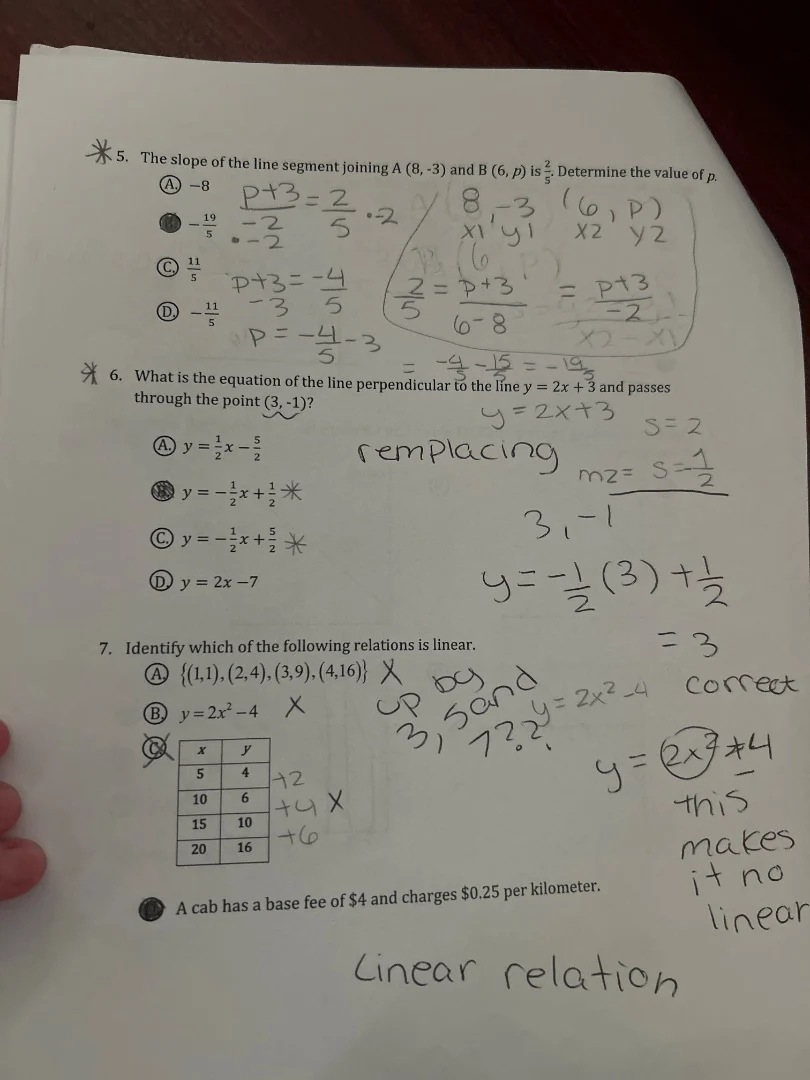 * 5. The slope of the line segment joining A (8, -3) and B (6, p) is 2/5. Determine the value of p.
A. −8
− 19/5
C. 11/5
D. − 11/5
p+3/-2 = 2/5 ·-2
·-2
p+3 = -4/5
-3
p = -4/5 -3
8, -3 (6, p)
x1 y1 x2 y2
2/5 = p+3/6-8 = p+3/-2
x2 - x1
= -4/5 - 15/5 = - 19/5
* 6. What is the equation of the line perpendicular to the line y = 2x + 3 and passes
through the point (3, -1)?
y = 2x+3
s = 2
remplacing
m2 = s = 1/2
A. y = 1/2 x − 5/2
B. y = − 1/2 x + 1/2 *
C. y = − 1/2 x + 5/2 *
D. y = 2x −7
3, -1
y = -1/2 (3) + 1/2
= 3
correct
7. Identify which of the following relations is linear.
A. {(1,1), (2,4), (3,9), (4,16)} X
up by
3, 5 and
7??
B. y = 2x² − 4 X
y = 2x² -4
C.
x y
5 4
10 6
15 10
20 16
+2
+4 X
+6
y = 2x² +4
this
makes
it no
linear
A cab has a base fee of $4 and charges $0.25 per kilometer.
Linear relation